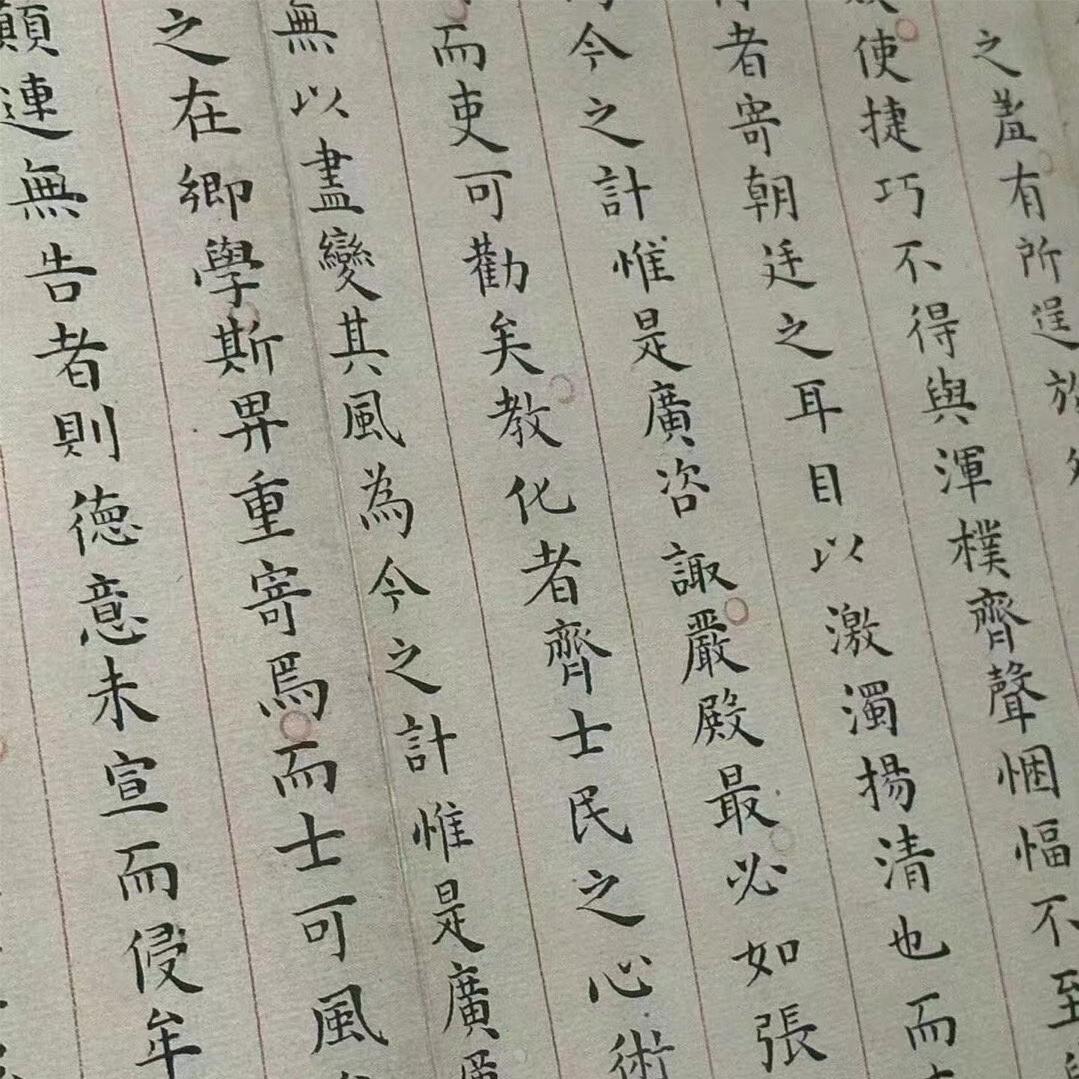 之盖有所逞於
使捷巧不得與渾樸齊聲悃愊不至
者寄朝廷之耳目以激濁揚清也而
今之計惟是廣咨諏嚴殿最必如張
而吏可勸矣教化者齊士民之心術
無以盡變其風為今之計惟是廣
之在鄉學斯畀重寄焉而士可風
顛連無告者則德意未宣而侵牟